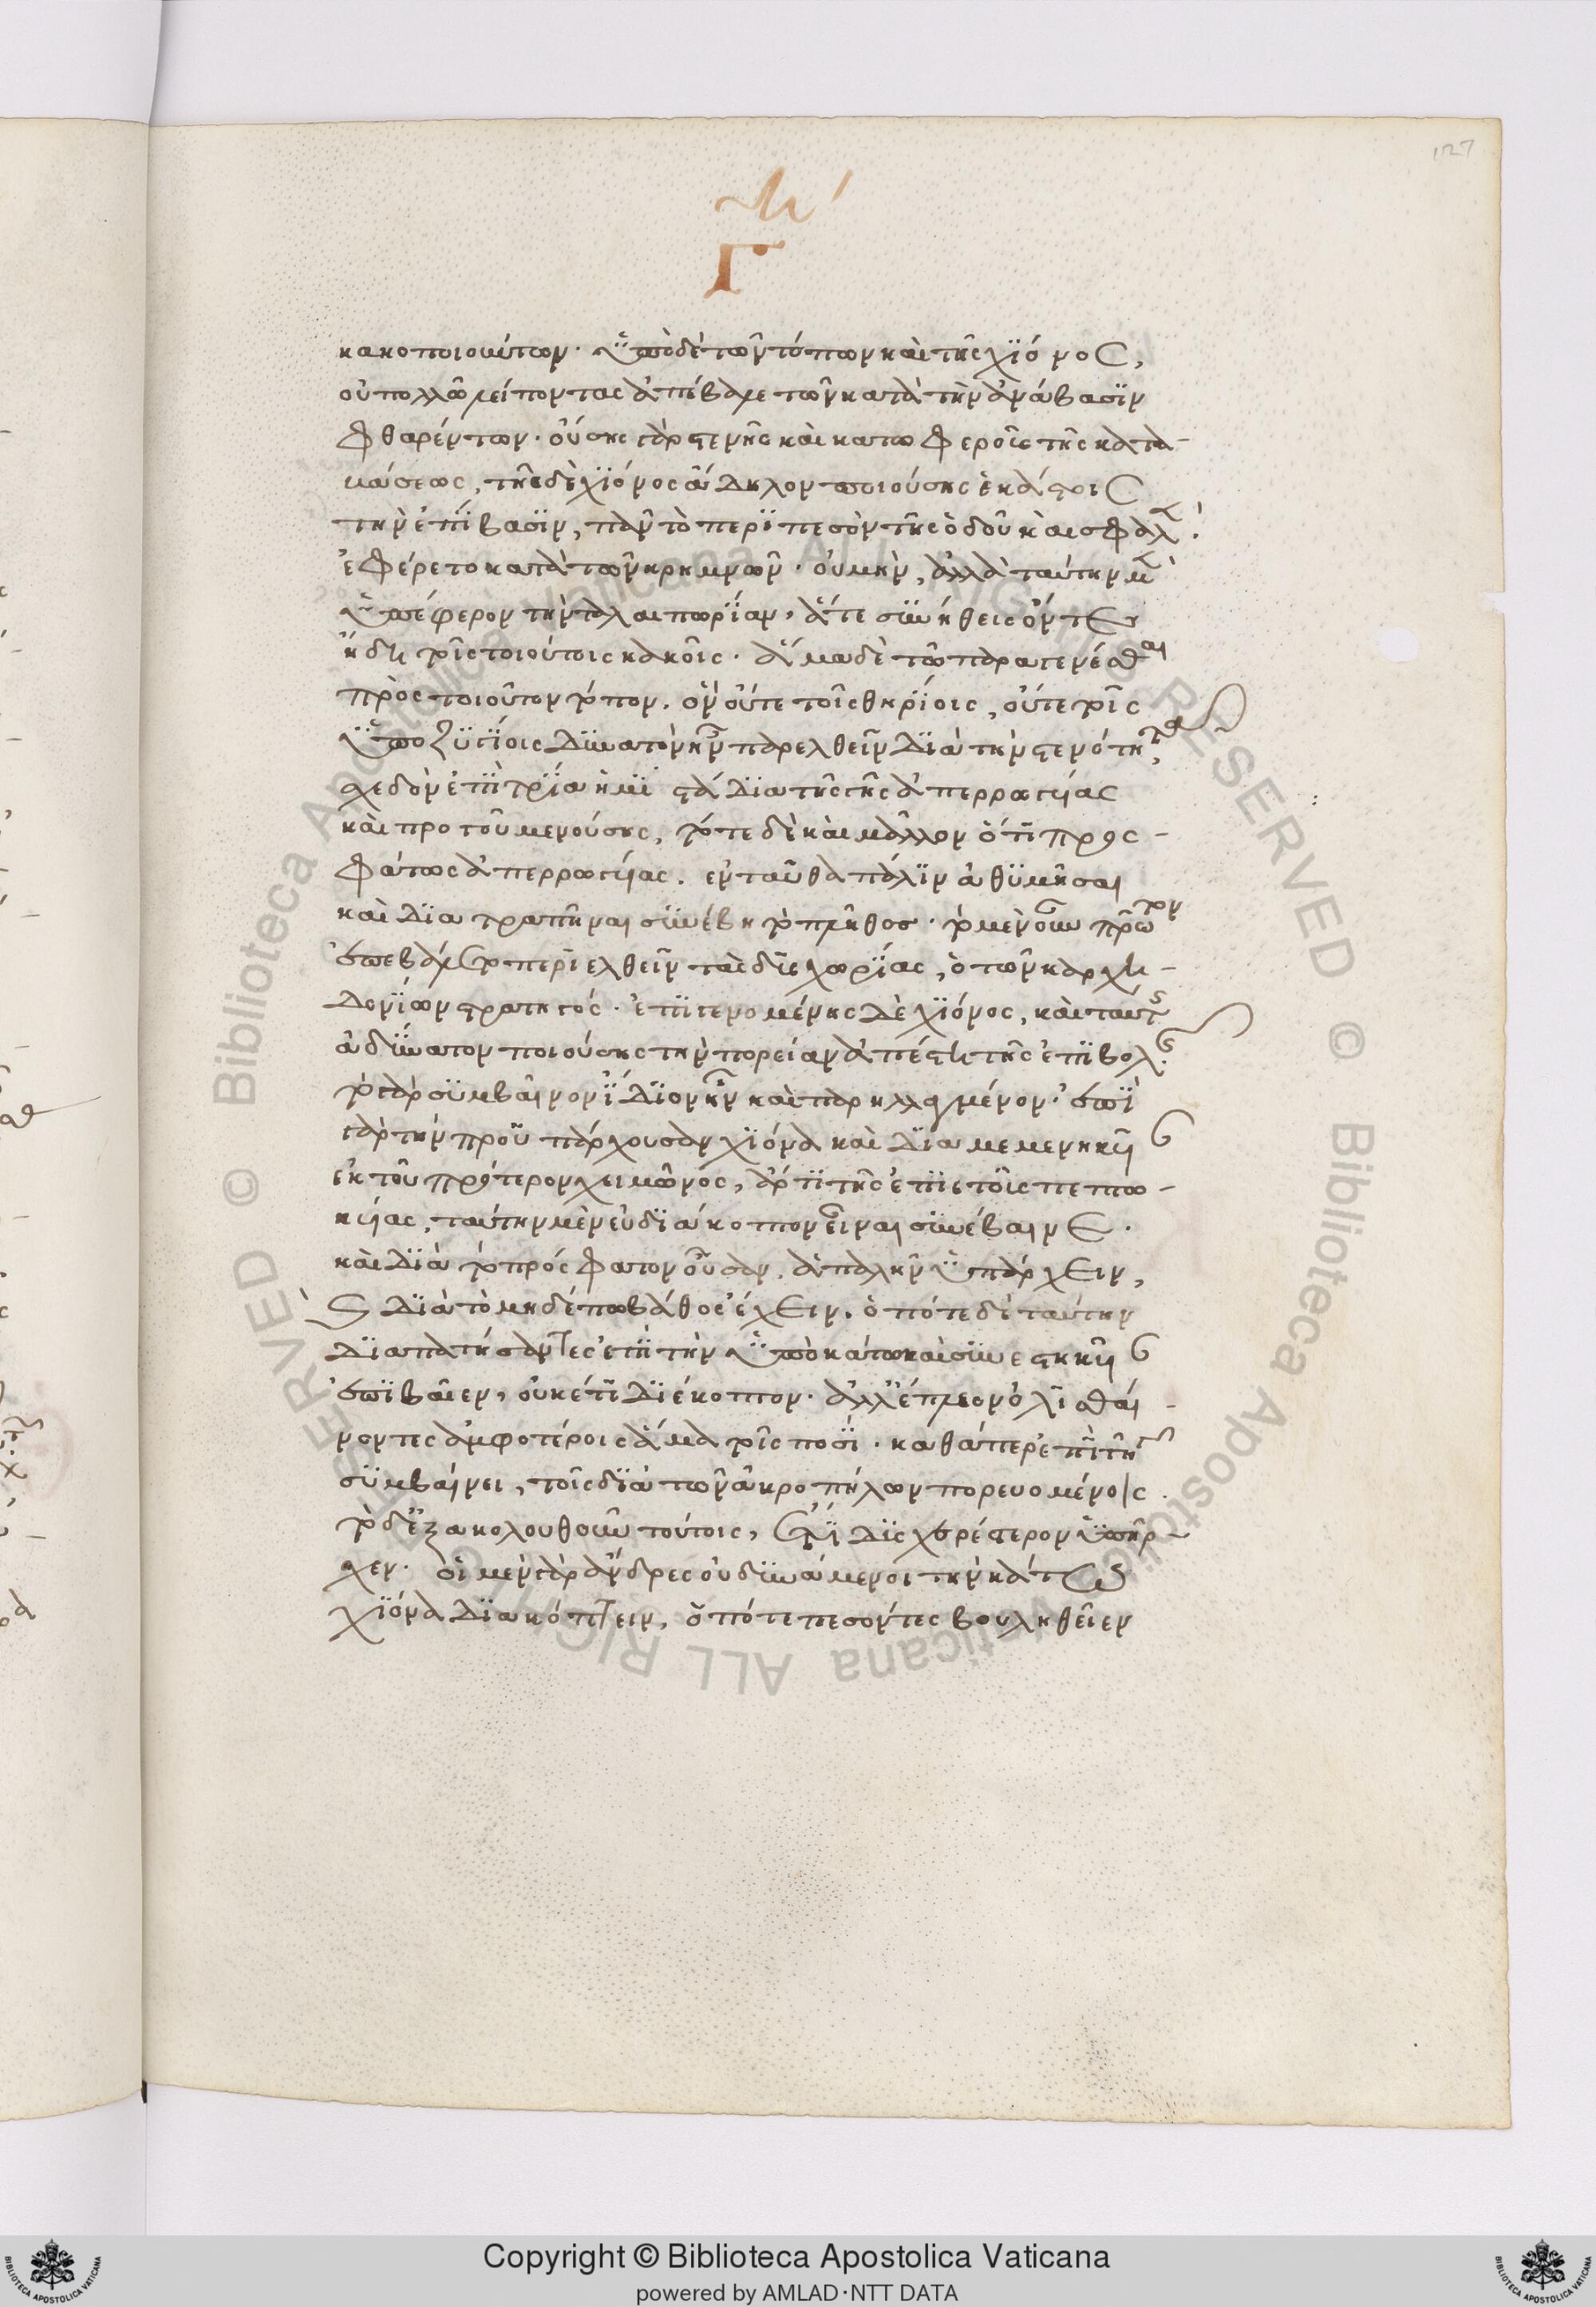 127
Γ
κακοποιούντων· ὑπὸ δὲ τῶν τόπων καὶ τῆς χιόνος,
οὐ πολλῶ λείποντας ἀπέβαλε τῶν κατὰ τὴν ἀνάβασιν
φθαρέντων· οὔσης γὰρ στενῆς καὶ κατωφεροῦς τῆς κατα-
βάσεως, τῆς δὲ χιόνος ἄδηλον ποιούσης ἑκάστοις
τὴν ἐπίβασιν, πᾶν τὸ περιπεσὸν τῆς ὁδοῦ καὶ σφαλ.
ἐφέρετο κατὰ τῶν κρημνῶν· οὐ μὴν, ἀλλὰ ταύτην μὲν
ὑπέφερον τὴν ταλαιπωρίαν, ἅτε συνήθεις ὄντες
ἤδη τοῖς τοιούτοις κακοῖς· ἅμα δὲ τῶ παραγενέσθαι
πρὸς τοιοῦτον τόπον, ὃν οὔτε τοῖς θηρίοις, οὔτε τοῖς
ὑποζυγίοις δυνατὸν ἦν παρελθεῖν διὰ τὴν στενότητα,
σχεδὸν ἐπὶ τρία ἡμι στάδια τῆς γῆς ἀπερρωγυίας
καὶ πρὸ τοῦ μὲν οὔσης, τότε δὲ καὶ μᾶλλον ὅτι προς-
φάτως ἀπερρωγυίας. ἐνταῦθα πάλιν ἀθυμῆσαι
καὶ διατραπῆναι συνέβη τὸ πλῆθος· τὸ μὲν οὖν πρῶτον
ἐπεβάλετο περιελθεῖν τὰς δυσχωρίας, ὁ τῶν καρχη-
δονίων στρατηγός· ἐπιγενομένης δὲ χιόνος, καὶ ταύτης
ἀδύνατον ποιούσης τὴν πορείαν ἀπέστη τῆς ἐπιβολῆς.
τὸ γὰρ συμβαῖνον ἴδιον ἦν καὶ παρηλλαγμένον· ἐπὶ
γὰρ τὴν προϋπάρχουσαν χιόνα καὶ διαμεμενηκυῖαν
ἐκ τοῦ πρότερον χειμῶνος, ἄρτι τῆς ἐπ' ἔτοις πεπτω-
κυίας, ταύτην μὲν εὐδιάκοπτον εἶναι συνέβαινε.
καὶ διὰ τὸ πρόσφατον οὖσαν, ἁπαλὴν ὑπάρχειν,
καὶ διὰ τὸ μηδέπω βάθος ἔχειν. ὁπότε δὲ ταύτην
διαπατήσαντες ἐπὶ τὴν ὑποκάτω καὶ συνεστηκυῖαν
ἐπιβαῖεν, οὐκέτι διέκοπτον· ἀλλ' ἐπέπλεον ὀλισθάι-
νοντες ἀμφοτέροις ἅμα τοῖς ποσί· καθάπερ ἐπὶ τῆ γῆ
συμβαίνει, τοῖς διὰ τῶν ἀκροπήλων πορευομένοις.
τὸ δ' ἐξακολουθοῦν τούτοις, ἔτι δυσχερέστερον ὑπῆρ-
χεν· οἱ μὲν γὰρ ἄνδρες οὐ δυνάμενοι τὴν κάτω
χιόνα διακόπτειν, ὁπότε πεσόντες βουληθεῖεν